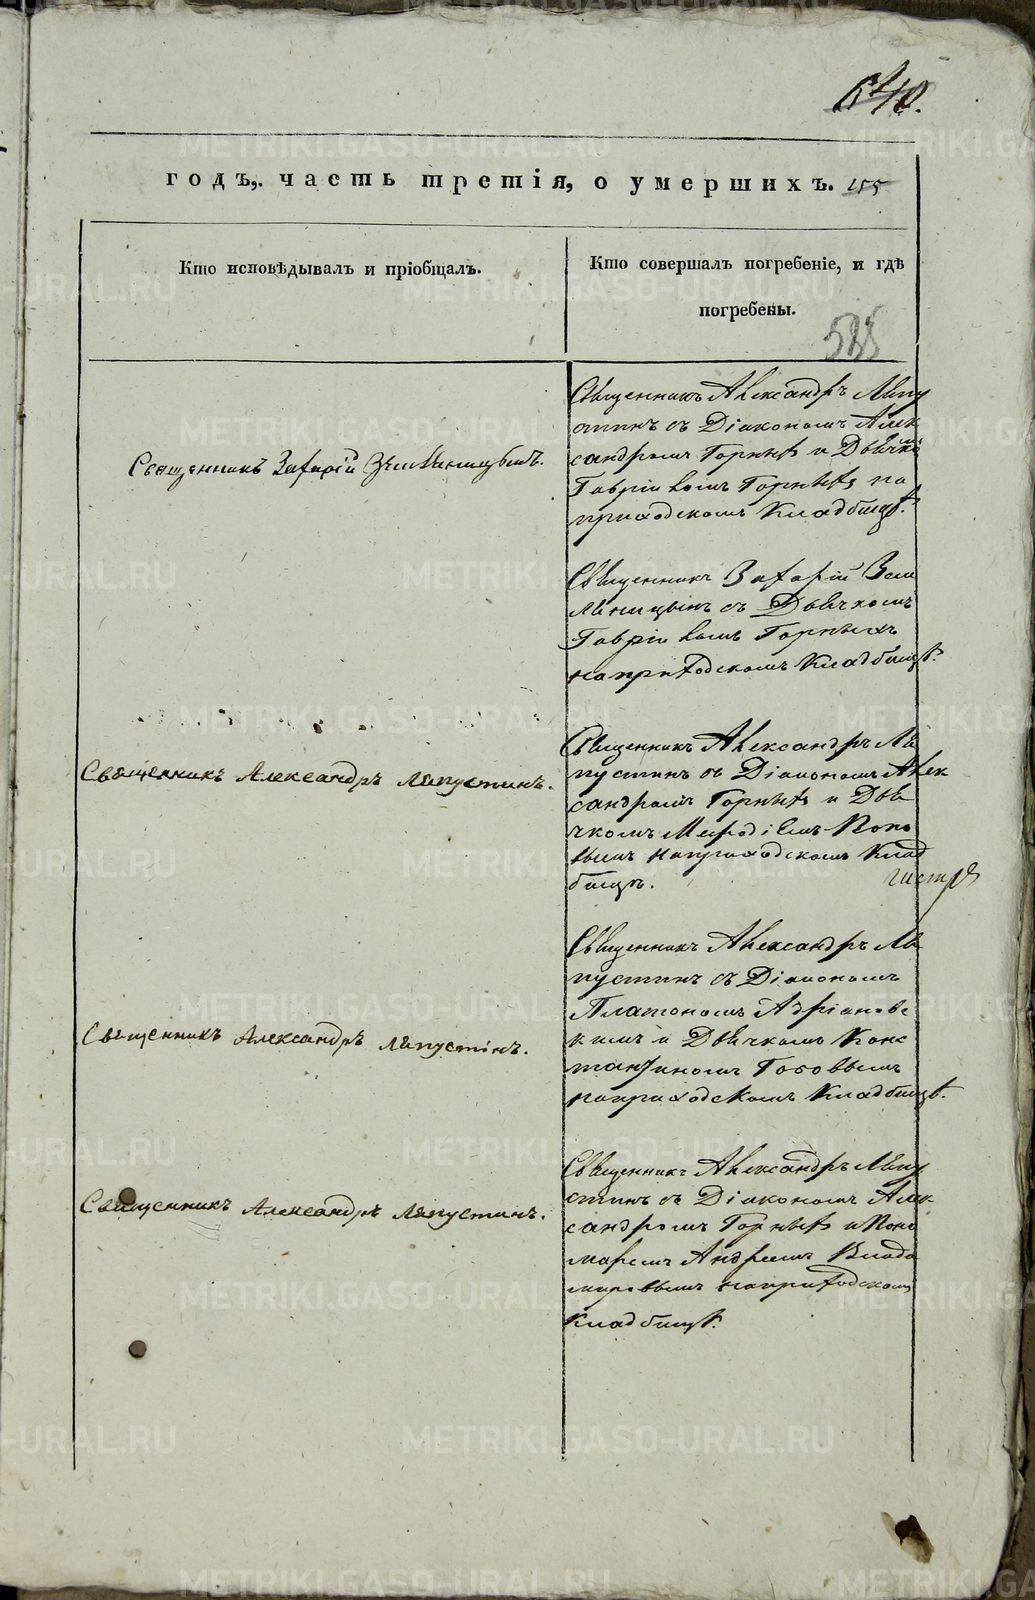 годъ, часть третія, о умершихъ. 155
Кто исповѣдывалъ и пріобщалъ.
Кто совершалъ погребеніе, и гдѣ
погребены.
Священникъ Захарій Земляницынъ.
Священникъ Александръ Ляпу
стинъ съ Діакономъ Алек
сандромъ Горныхъ и Дьячко
Гавріиломъ Горныхъ на
приходскомъ Кладбищѣ.
Священникъ Захарій Зем
ляницынъ съ Дьячкомъ
Гавріиломъ Горныхъ
на приходскомъ Кладбищѣ.
Священникъ Александръ Ляпустинъ.
Священникъ Александръ Ля
пустинъ съ Діакономъ Алек
сандромъ Горныхъ и Дья
чкомъ Меѳодіемъ Попо
вымъ на приходскомъ Клад
бищѣ.
Священникъ Александръ Ляпустинъ.
Священникъ Александръ Ля
пустинъ съ Діакономъ
Платономъ Адріановс
кимъ и Дьячкомъ Конс
тантиномъ
на приходскомъ Кладбищѣ.
Священникъ Александръ Ляпустинъ.
Священникъ Александръ Ляпу
стинъ съ Діакономъ Алек
сандромъ Горныхъ и Поно
маремъ Андреемъ Влади
мировымъ на приходскомъ
Кладбищѣ.
METRIKI.GASO-URAL.RU